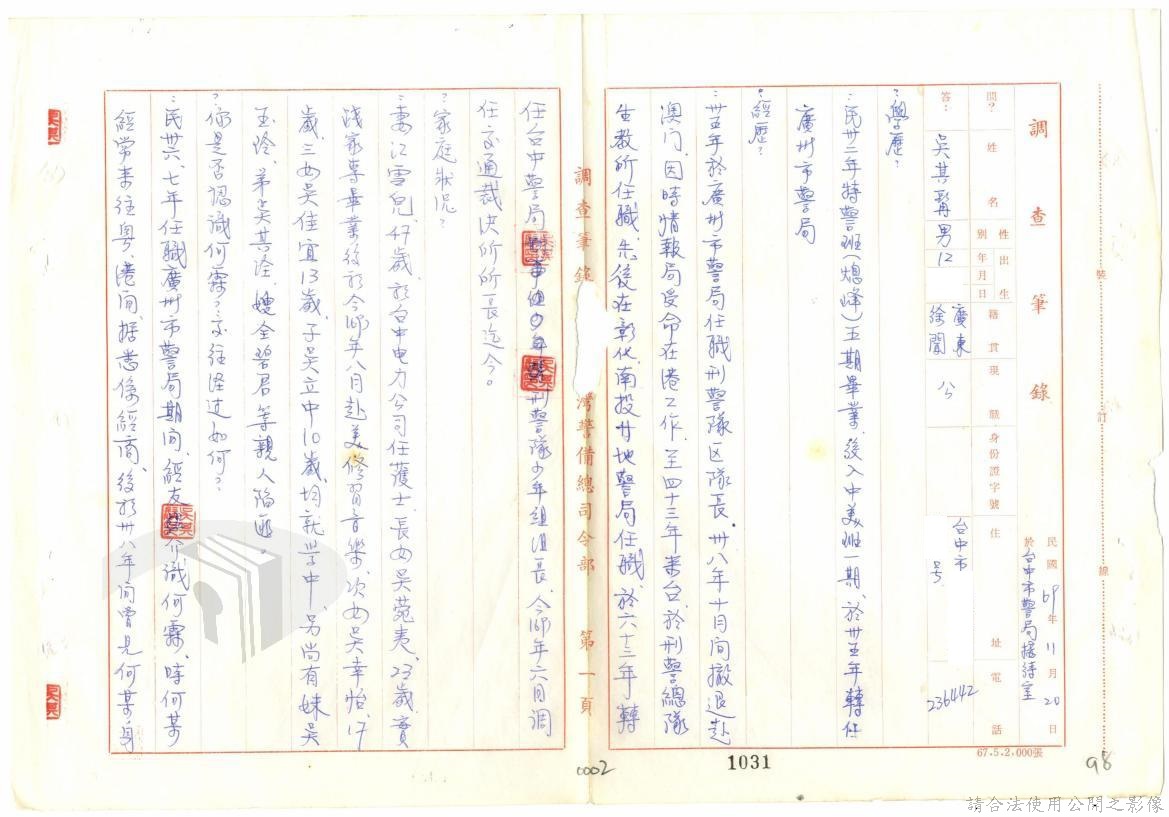 調查筆錄
民國69年11月20日
於台中市警局接待室
問：姓名 性別 出生年月日 籍貫 現職 身份證字號 住址 電話
答：吳其 男 12 廣東徐聞 公 台中市 號 236442
：學歷？
：民卅二年特警班（熄峰）五期畢業、後入中美班一期、於卅五年轉任
廣州市警局
：經歷？
：卅五年於廣州市警局任職刑警隊区隊長．卅八年十月間撤退赴
澳门、因時情報局受命在港工作、至四十三年來台、於刑警總隊
生教所任職、先後在彰化、南投廿地警局任職、於六十三年轉
調查筆錄 灣警備總司令部 第一頁
任台中警局刑警隊少年組組長、今 年六月調
任交通裁決所所長迄今。
：家庭狀況？
：妻江雪兒、47歲、於台中电力公司任護士、長女吳菀夷、23歲、實
踐家專畢業後於今 年八月赴美修習音樂、次女吳幸怡、17
歲、三女吳佳宜13歲、子吳立中10歲、均就学中、另尚有妹吳
玉冷、弟吳其淦、嫂全碧君等親人陷匪。
：你是否認識何霖？交往經过如何？
：民卅六、七年任職廣州市警局期间、經友 介識何霖、時何某
經常來往粵、港间、据悉係經商、後於卅八年间曾見何某身
裝訂線
67.5.2,000張
98
1031
0002
請合法使用公開之影像